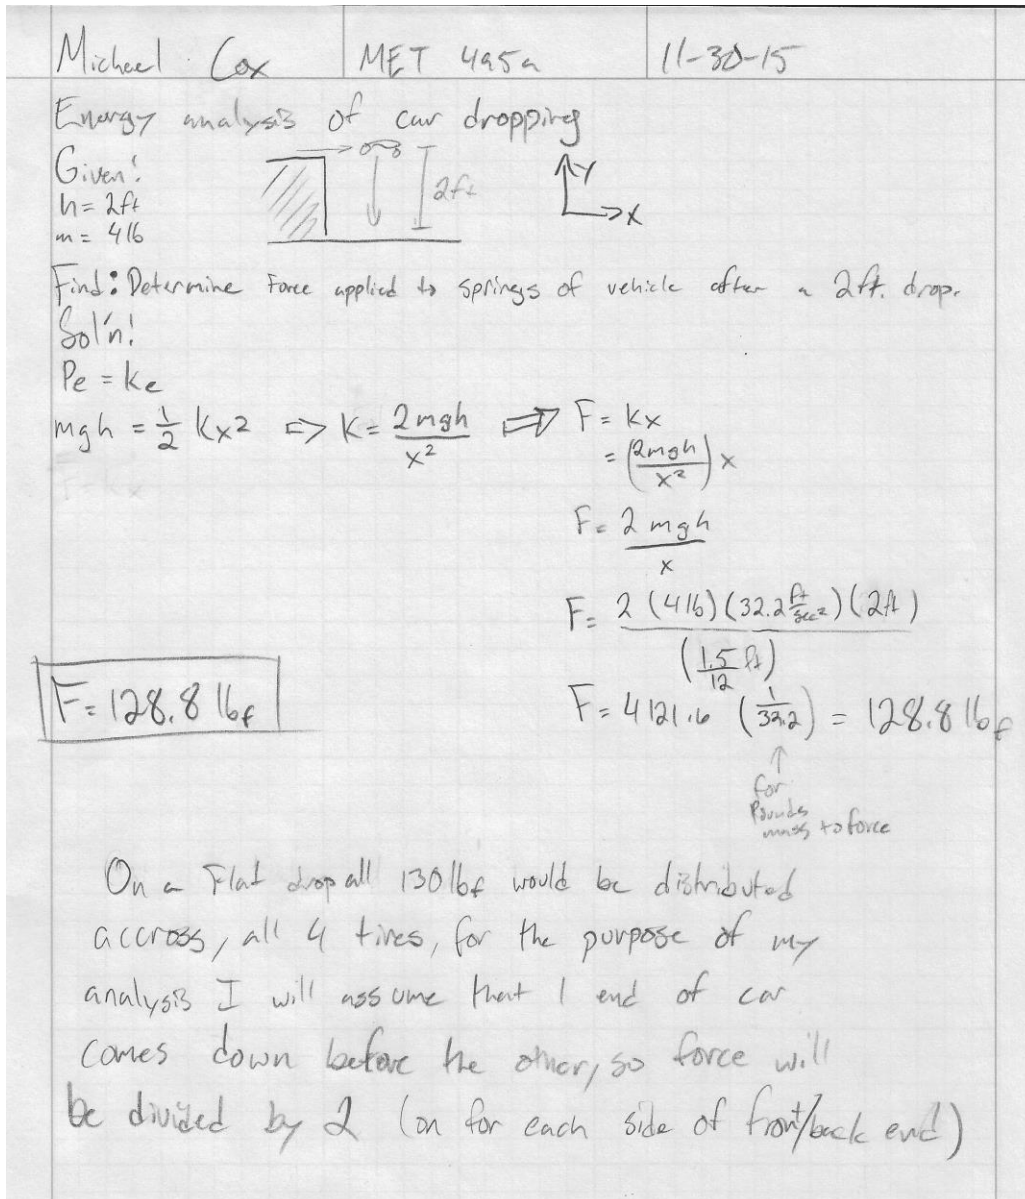 Michael Cox MET 495a 11-30-15
Energy analysis of car dropping
Given:
h = 2ft
m = 4 lb
2ft
Y
X
Find: Determine Force applied to springs of vehicle after a 2ft. drop.
Sol'n:
Pe = ke
mgh = 1/2 kx² => K = 2mgh/x² => F = kx
= (2mgh/x²) x
F = 2mgh/x
F = 2 (4 lb) (32.2 ft/sec²) (2ft) / (1.5/12 ft)
F = 128.8 lbf
F = 4121.6 (1/32.2) = 128.8 lbf
↑
for
Pounds
mass to force
On a Flat drop all 130 lbf would be distributed
accross, all 4 tires, for the purpose of my
analysis I will assume that 1 end of car
comes down before the other, so force will
be divided by 2 (on for each side of front/back end)